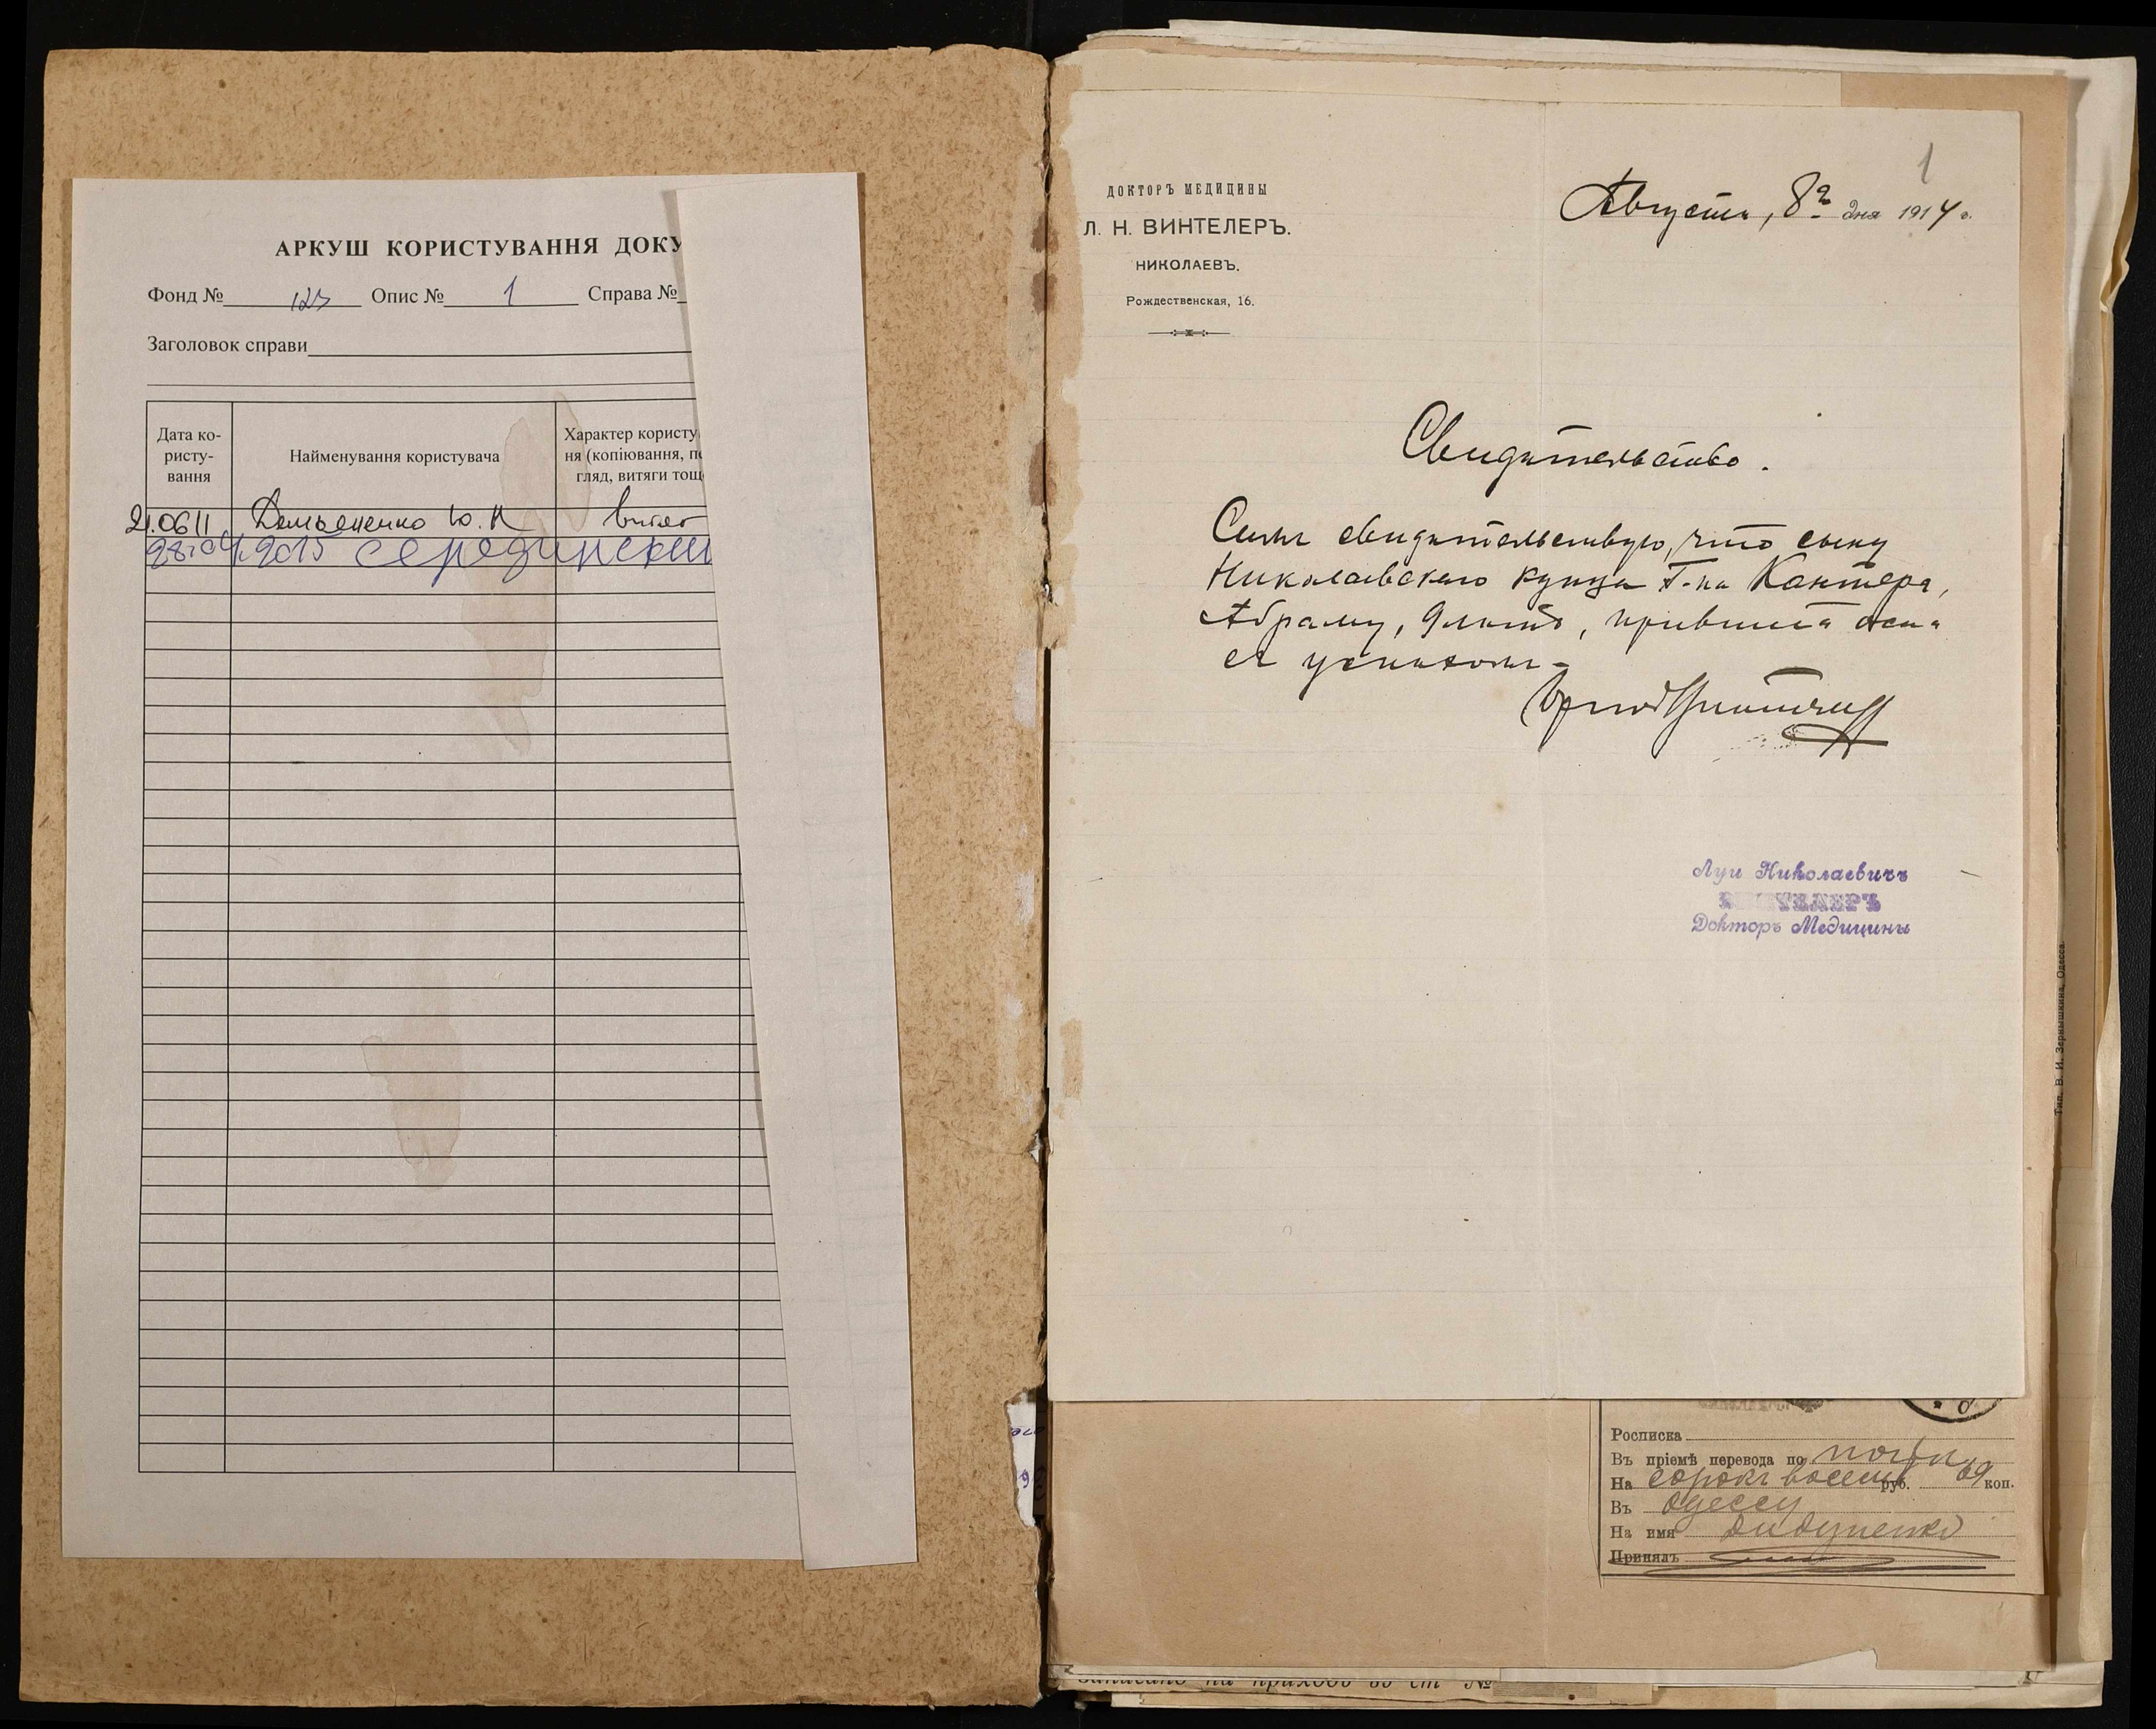 АРКУШ КОРИСТУВАННЯ ДОКУ
Фонд № 123 Опис № 1 Справа №
Заголовок справи
Дата ко-
ристу-
вання
Найменування користувача
Характер користу
ня (копіювання, п
гляд, витяги тощ
21.06 11 Демьяненко Ю. Н
28.04.2015 Середински
1
ДОКТОРЪ МЕДИЦИНЫ
Л. Н. ВИНТЕЛЕРЪ.
НИКОЛАЕВЪ.
Рождественская, 16.
Августа, 8го дня 1914 г.
Свидѣтельство.
Симъ свидѣтельствую, что сыну
Николаевскаго купца Г-на Кантера,
Абраму, 9 лѣтъ, привита оспа
съ успѣхомъ.
Луи Николаевичъ
ВИНТЕЛЕРЪ
Докторъ Медицины
Тип. В. И. Зернышкина, Одесса.
Росписка
Въ пріемѣ перевода по почтѣ
На сорокъ восемь руб. 69 коп.
Въ Одессу
На имя
Принялъ
Записано на приходъ въ ст №